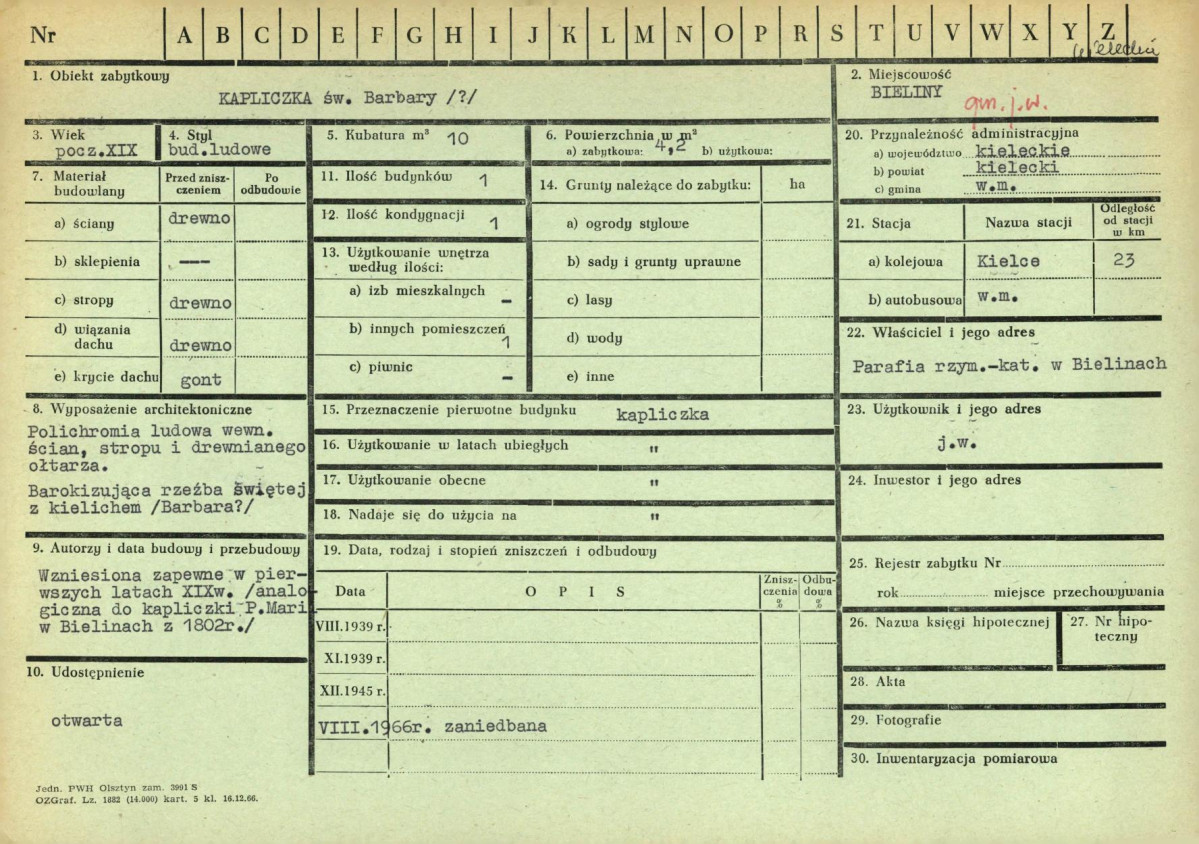 Nr A B C D E F G H I J K L M N O P R S T U V W X Y Z
1. Obiekt zabytkowy
KAPLICZKA św. Barbary /?/
2. Miejscowość
BIELINY
gm. j.w.
3. Wiek
pocz.XIX
4. Styl
bud.ludowe
5. Kubatura m³ 10
6. Powierzchnia w m²
a) zabytkowa: 4,2 b) użytkowa:
7. Materiał budowlany
Przed zniszczeniem
Po odbudowie
a) ściany drewno
b) sklepienia ---
c) stropy drewno
d) wiązania dachu drewno
e) krycie dachu gont
11. Ilość budynków 1
12. Ilość kondygnacji 1
13. Użytkowanie wnętrza
według ilości:
a) izb mieszkalnych -
b) innych pomieszczeń
1
c) piwnic -
14. Grunty należące do zabytku: ha
a) ogrody stylowe
b) sady i grunty uprawne
c) lasy
d) wody
e) inne
20. Przynależność administracyjna
a) województwo kieleckie
b) powiat kielecki
c) gmina w.m.
21. Stacja Nazwa stacji Odległość od stacji w km
a) kolejowa Kielce 23
b) autobusowa w.m.
22. Właściciel i jego adres
Parafia rzym.-kat. w Bielinach
8. Wyposażenie architektoniczne
Polichromia ludowa wewn.
ścian, stropu i drewnianego
ołtarza.
Barokizująca rzeźba świętej
z kielichem /Barbara?/
15. Przeznaczenie pierwotne budynku kapliczka
16. Użytkowanie w latach ubiegłych "
17. Użytkowanie obecne "
18. Nadaje się do użycia na "
23. Użytkownik i jego adres
j.w.
24. Inwestor i jego adres
9. Autorzy i data budowy i przebudowy
Wzniesiona zapewne w pier-
wszych latach XIXw. /analo
giczna do kapliczki P.Mari
w Bielinach z 1802r./
10. Udostępnienie
otwarta
19. Data, rodzaj i stopień zniszczeń i odbudowy
Data OPIS Zniszczenia % Odbudowa %
VIII.1939 r.
XI.1939 r.
XII.1945 r.
VIII.1966r. zaniedbana
25. Rejestr zabytku Nr
rok miejsce przechowywania
26. Nazwa księgi hipotecznej
27. Nr hipo-
teczny
28. Akta
29. Fotografie
30. Inwentaryzacja pomiarowa
Jedn. PWH Olsztyn zam. 3991 S
OZGraf. Lz. 1682 (14.000) kart. 5 kl. 16.12.66.